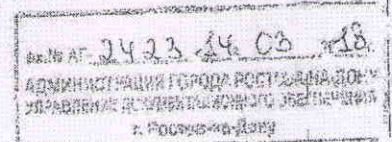 вх.№ АГ- 2423 «14» 03 18
АДМИНИСТРАЦИЯ ГОРОДА РОСТОВА-НА-ДОНУ
УПРАВЛЕНИЕ ДОКУМЕНТАЦИОННОГО ОБЕСПЕЧЕНИЯ
г. Ростов-на-Дону